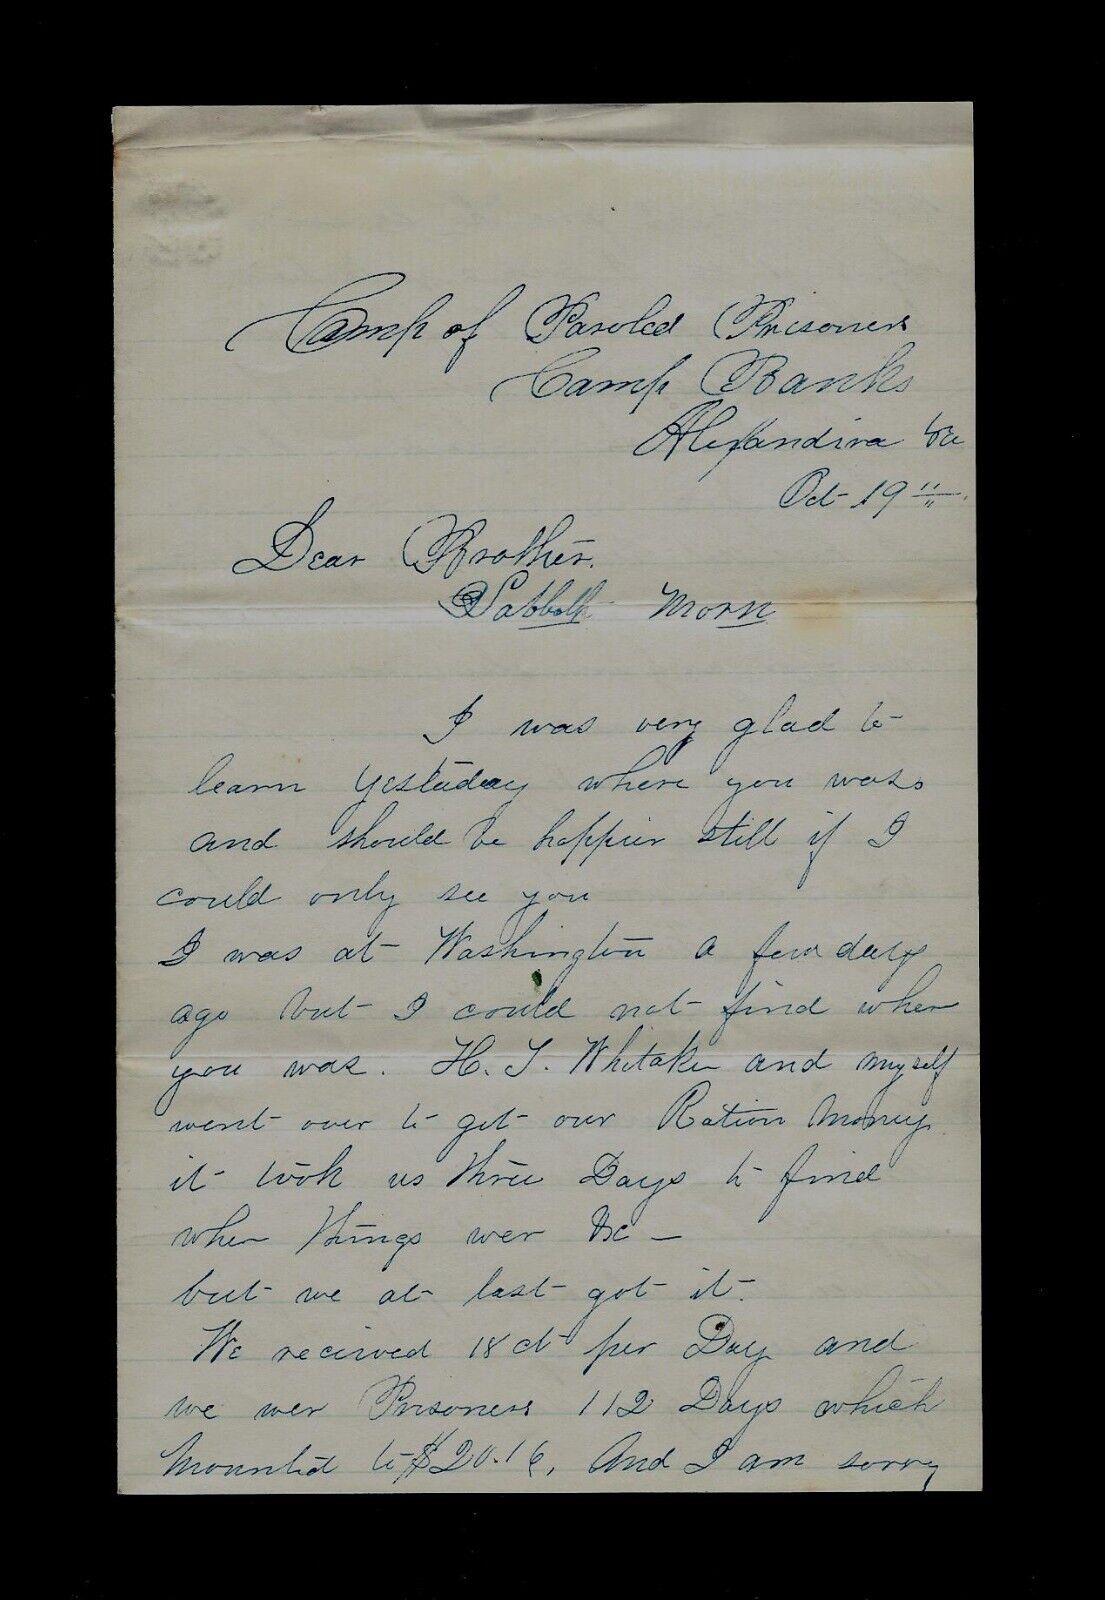 Camp of Paroled Prisoners
Camp Banks
Alexandira Va
Oct 19"
Dear Brother.
Sabbath Morn
I was very glad to
learn yesteday where you was
and should be happier still if I
could only see you
I was at Washington a few days
ago but I could not find wher
you was. H. T. Whitaker and myself
went over to get our Ration Money
it took us three Days to find
wher things wer &c —
but we at last got it.
We recieved 18 ct per Day and
we wer Prisoners 112 Days which
Mounted to $20.16. And I am sorry